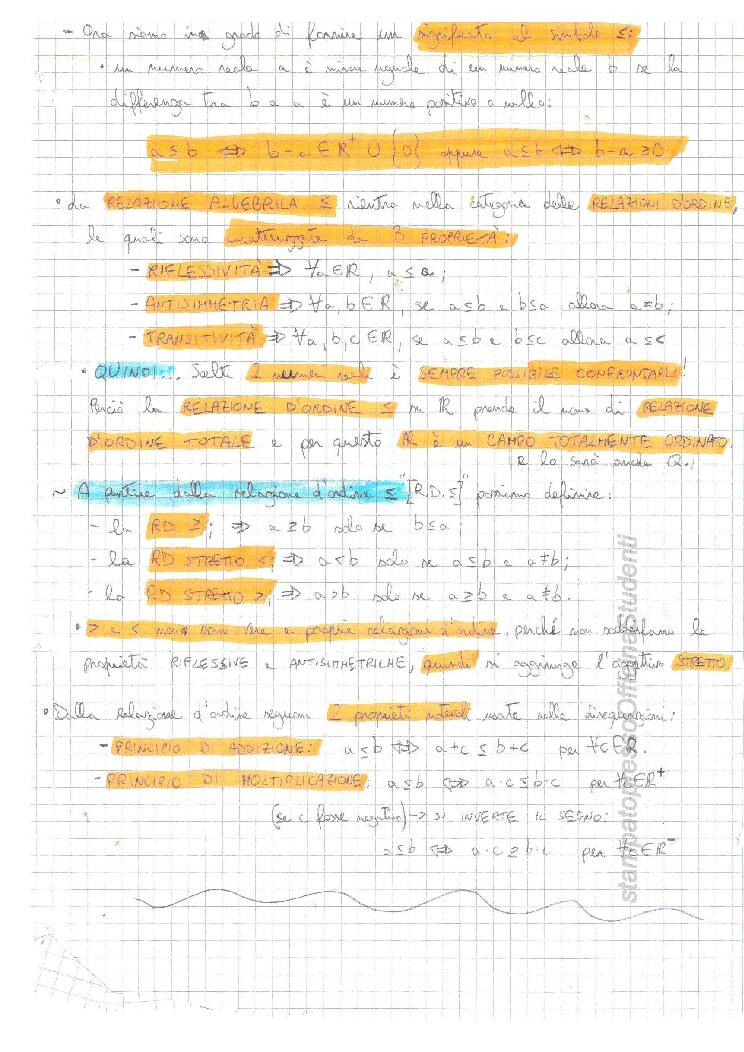 - Ora siamo in grado di fornire un significato al simbolo ≤:
• un numero reale a è minore uguale di un numero reale b se la
differenza tra b e a è un numero positivo o nullo:
a ≤ b ⇔ b - a ∈ R⁺ ∪ {0} oppure a ≤ b ⇔ b - a ≥ 0
• La RELAZIONE ALGEBRICA ≤ rientra nella categoria delle RELAZIONI D'ORDINE,
le quali sono caratterizzate da 3 PROPRIETÀ:
- RIFLESSIVITÀ ⇒ ∀a ∈ R, a ≤ a;
- ANTISIMMETRIA ⇒ ∀a, b ∈ R, se a ≤ b e b ≤ a allora a = b;
- TRANSITIVITÀ ⇒ ∀a, b, c ∈ R, se a ≤ b e b ≤ c allora a ≤ c
• QUINDI... Scelti 2 numeri reali è SEMPRE POSSIBILE CONFRONTARLI!
Perciò la RELAZIONE D'ORDINE ≤ su R prende il nome di RELAZIONE
D'ORDINE TOTALE e per questo R è un CAMPO TOTALMENTE ORDINATO.
(e lo sarà anche Q.)
~ A partire dalla relazione d'ordine ≤ "[R.D. ≤]" possiamo definire:
- la RD ≥; ⇒ a ≥ b solo se b ≤ a;
- la RD STRETTO <; ⇒ a < b solo se a ≤ b e a ≠ b;
- la RD STRETTO >; ⇒ a > b solo se a ≥ b e a ≠ b.
• > e < non sono vere e proprie relazioni d'ordine, perché non soddisfano le
proprietà RIFLESSIVE e ANTISIMMETRICHE, quindi si aggiunge l'aggettivo STRETTO
• Dalla relazione d'ordine seguono 2 proprietà notevoli usate nelle disequazioni:
- PRINCIPIO DI ADDIZIONE: a ≤ b ⇔ a + c ≤ b + c per ∀c ∈ R.
- PRINCIPIO DI MOLTIPLICAZIONE: a ≤ b ⇔ a · c ≤ b · c per ∀c ∈ R⁺
(se c fosse negativo) → SI INVERTE IL SEGNO:
a ≤ b ⇔ a · c ≥ b · c per ∀c ∈ R⁻
stampatopressoOfficinaStudenti